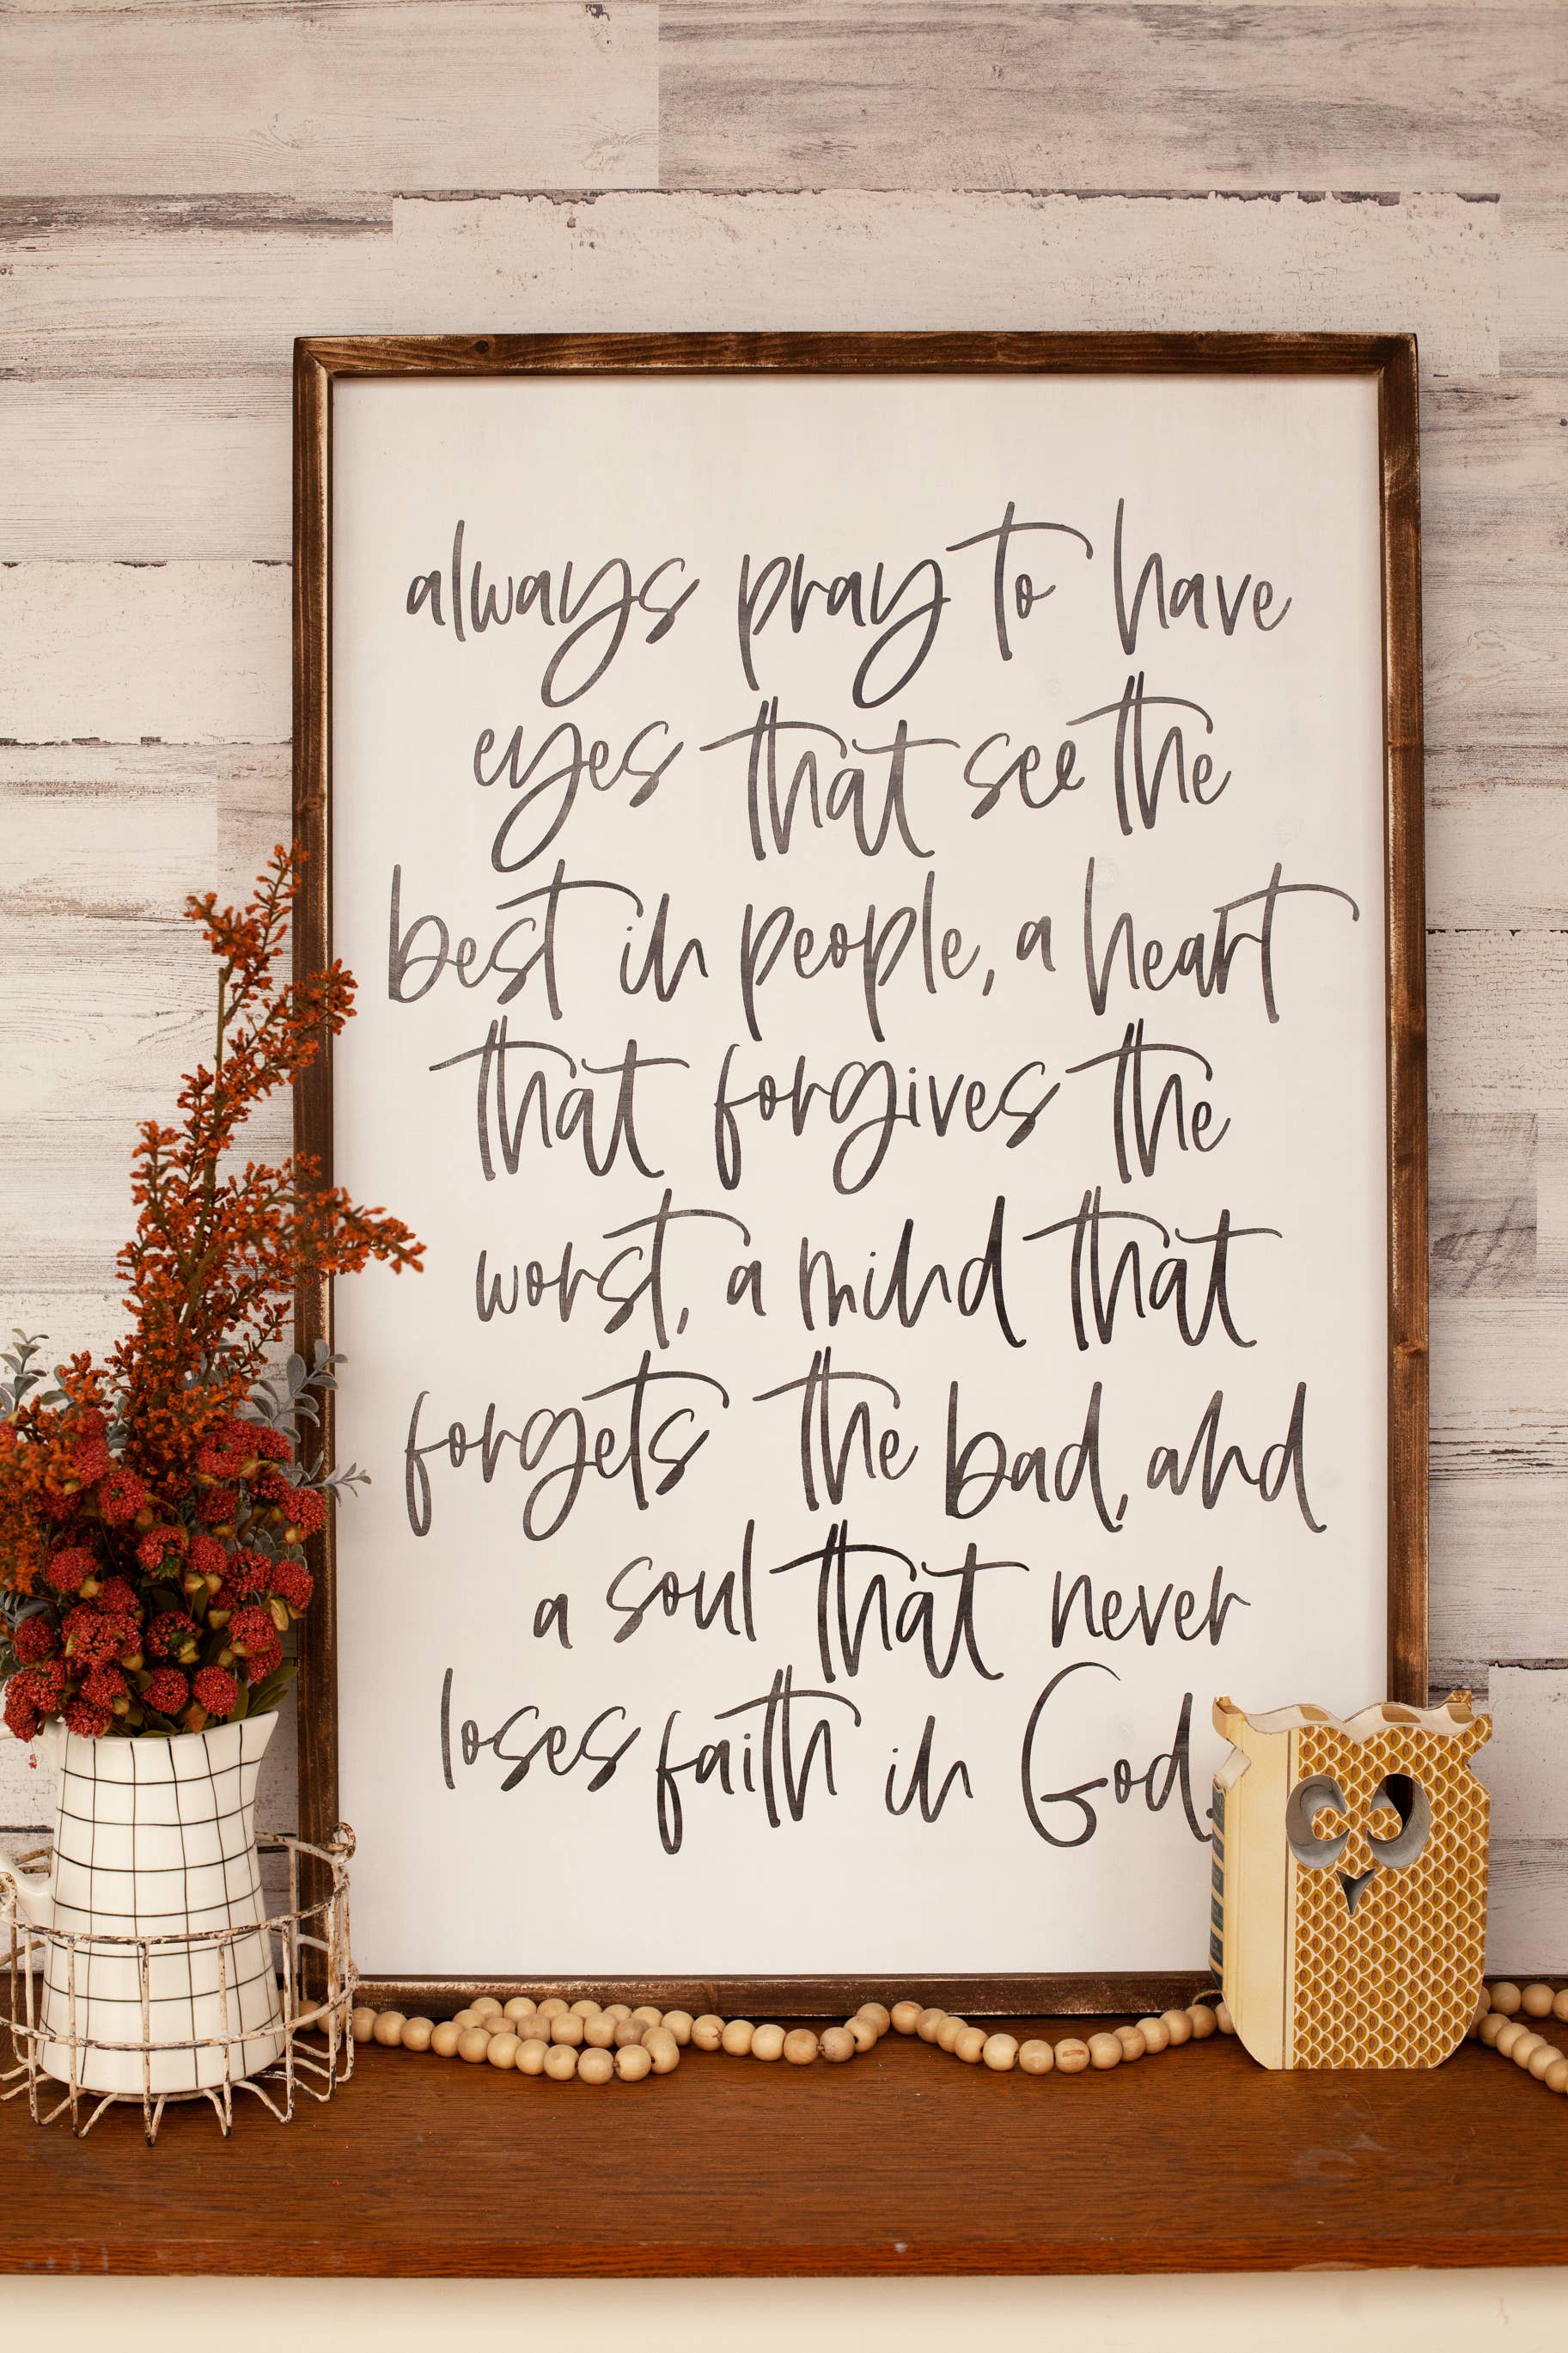 always pray to have
eyes that see the
best in people, a heart
that forgives the
worst, a mind that
forgets the bad, and
a soul that never
loses faith in God.